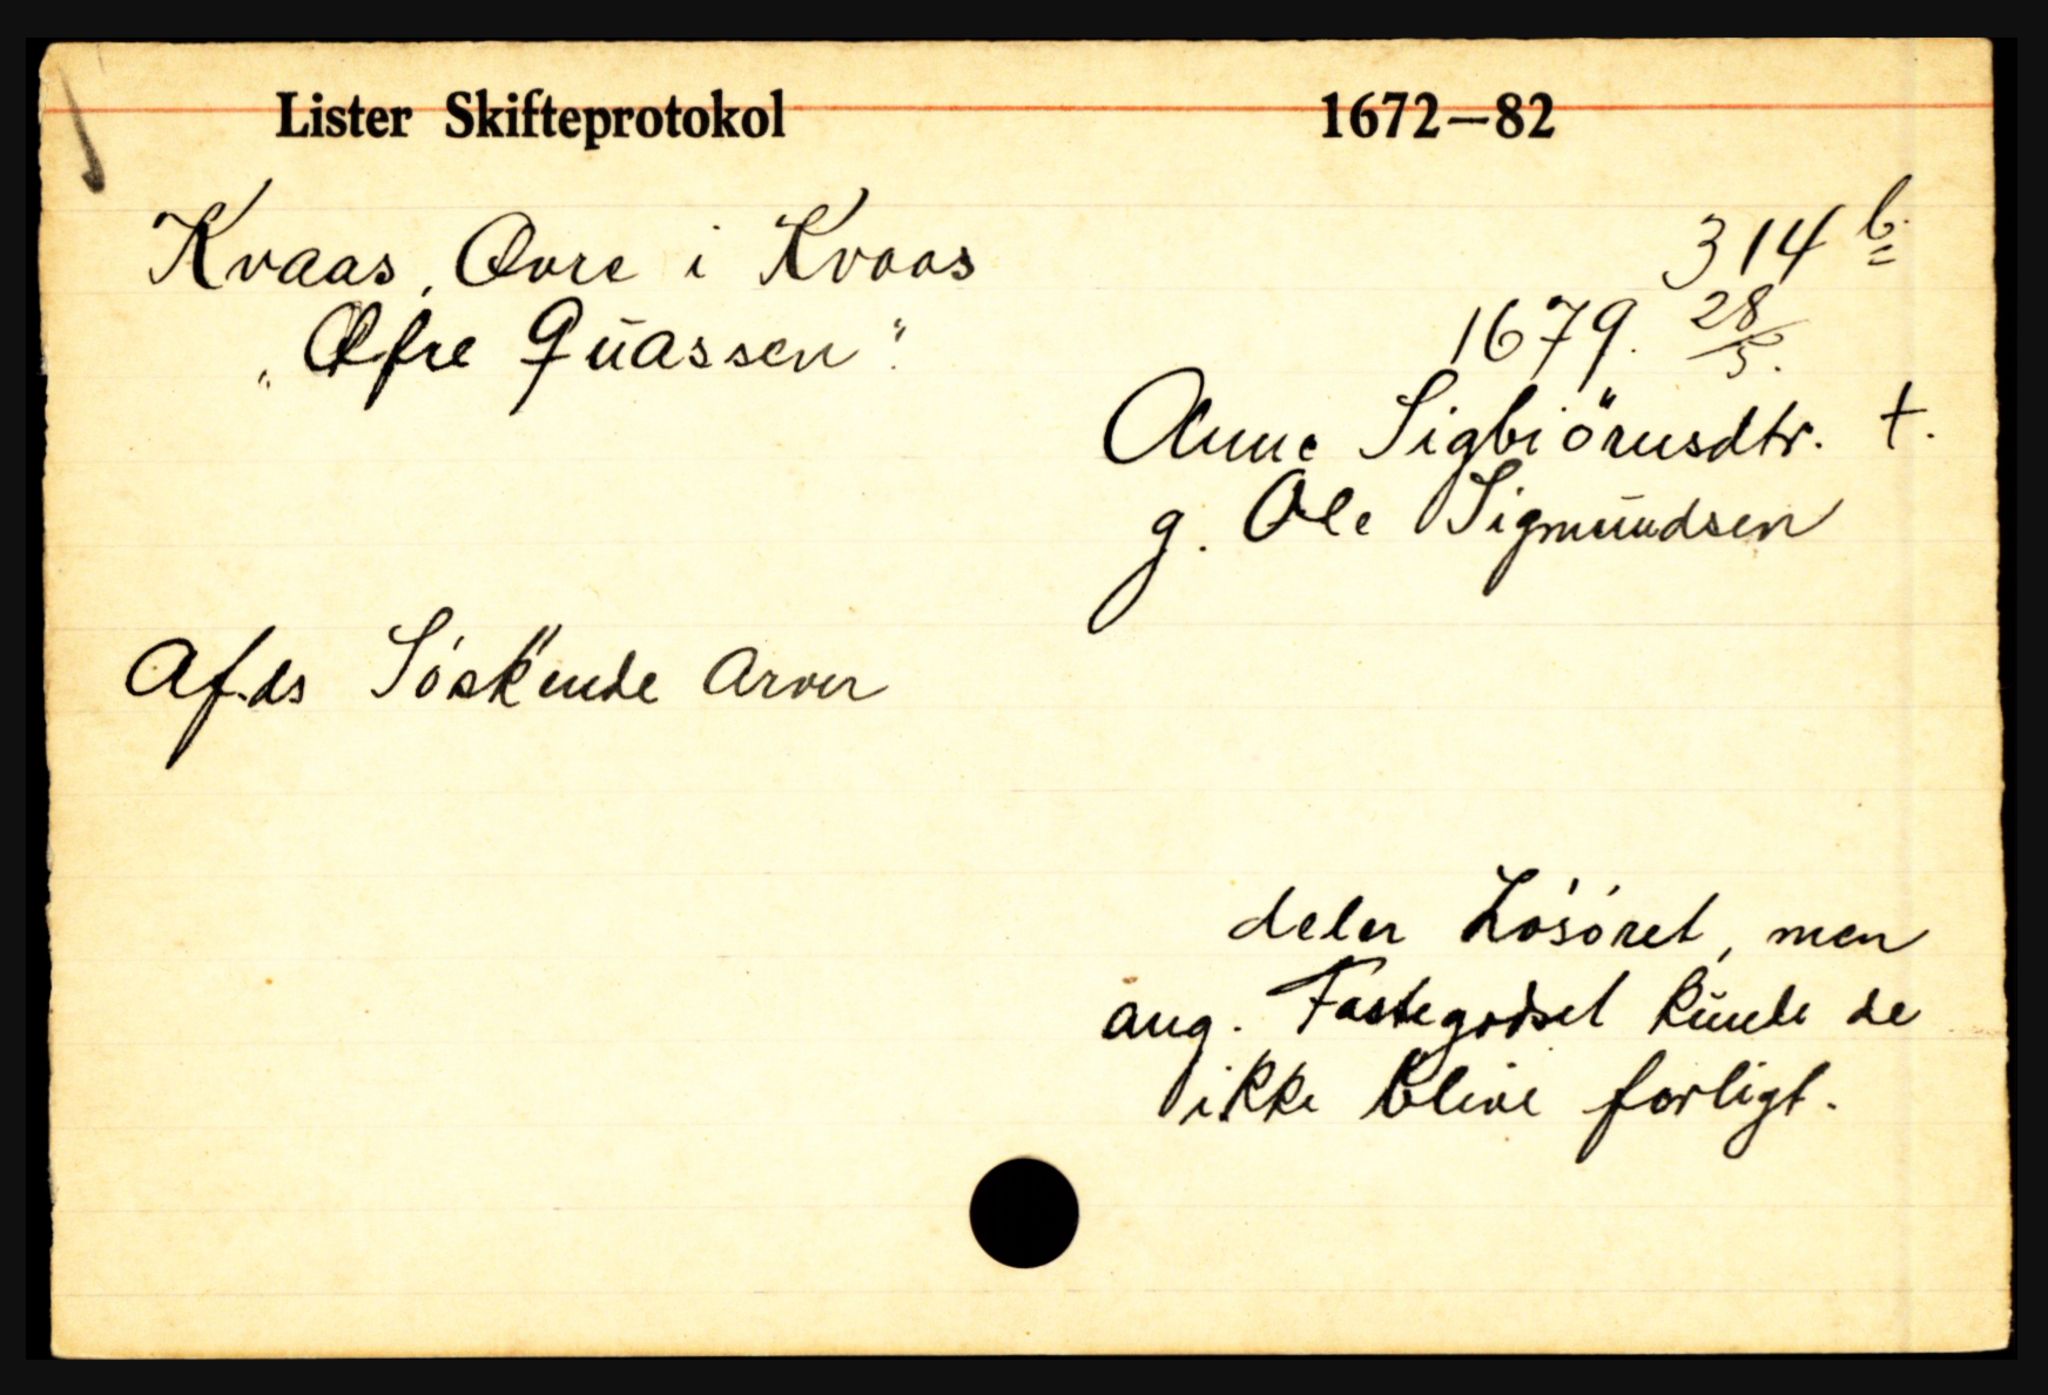 Lister Skifteprotokol 1672—82
Kvaas, Øvre i Kvaas 314 b.
„Øfre Quassen" 1679. 28/5.
Anne Sigbiörnsdtr. †.
g. Ole Sigmundsen
Afds Söskende arver
deler Lösöret, men
ang. Fastegodset kunde de
ikke blive forligt.